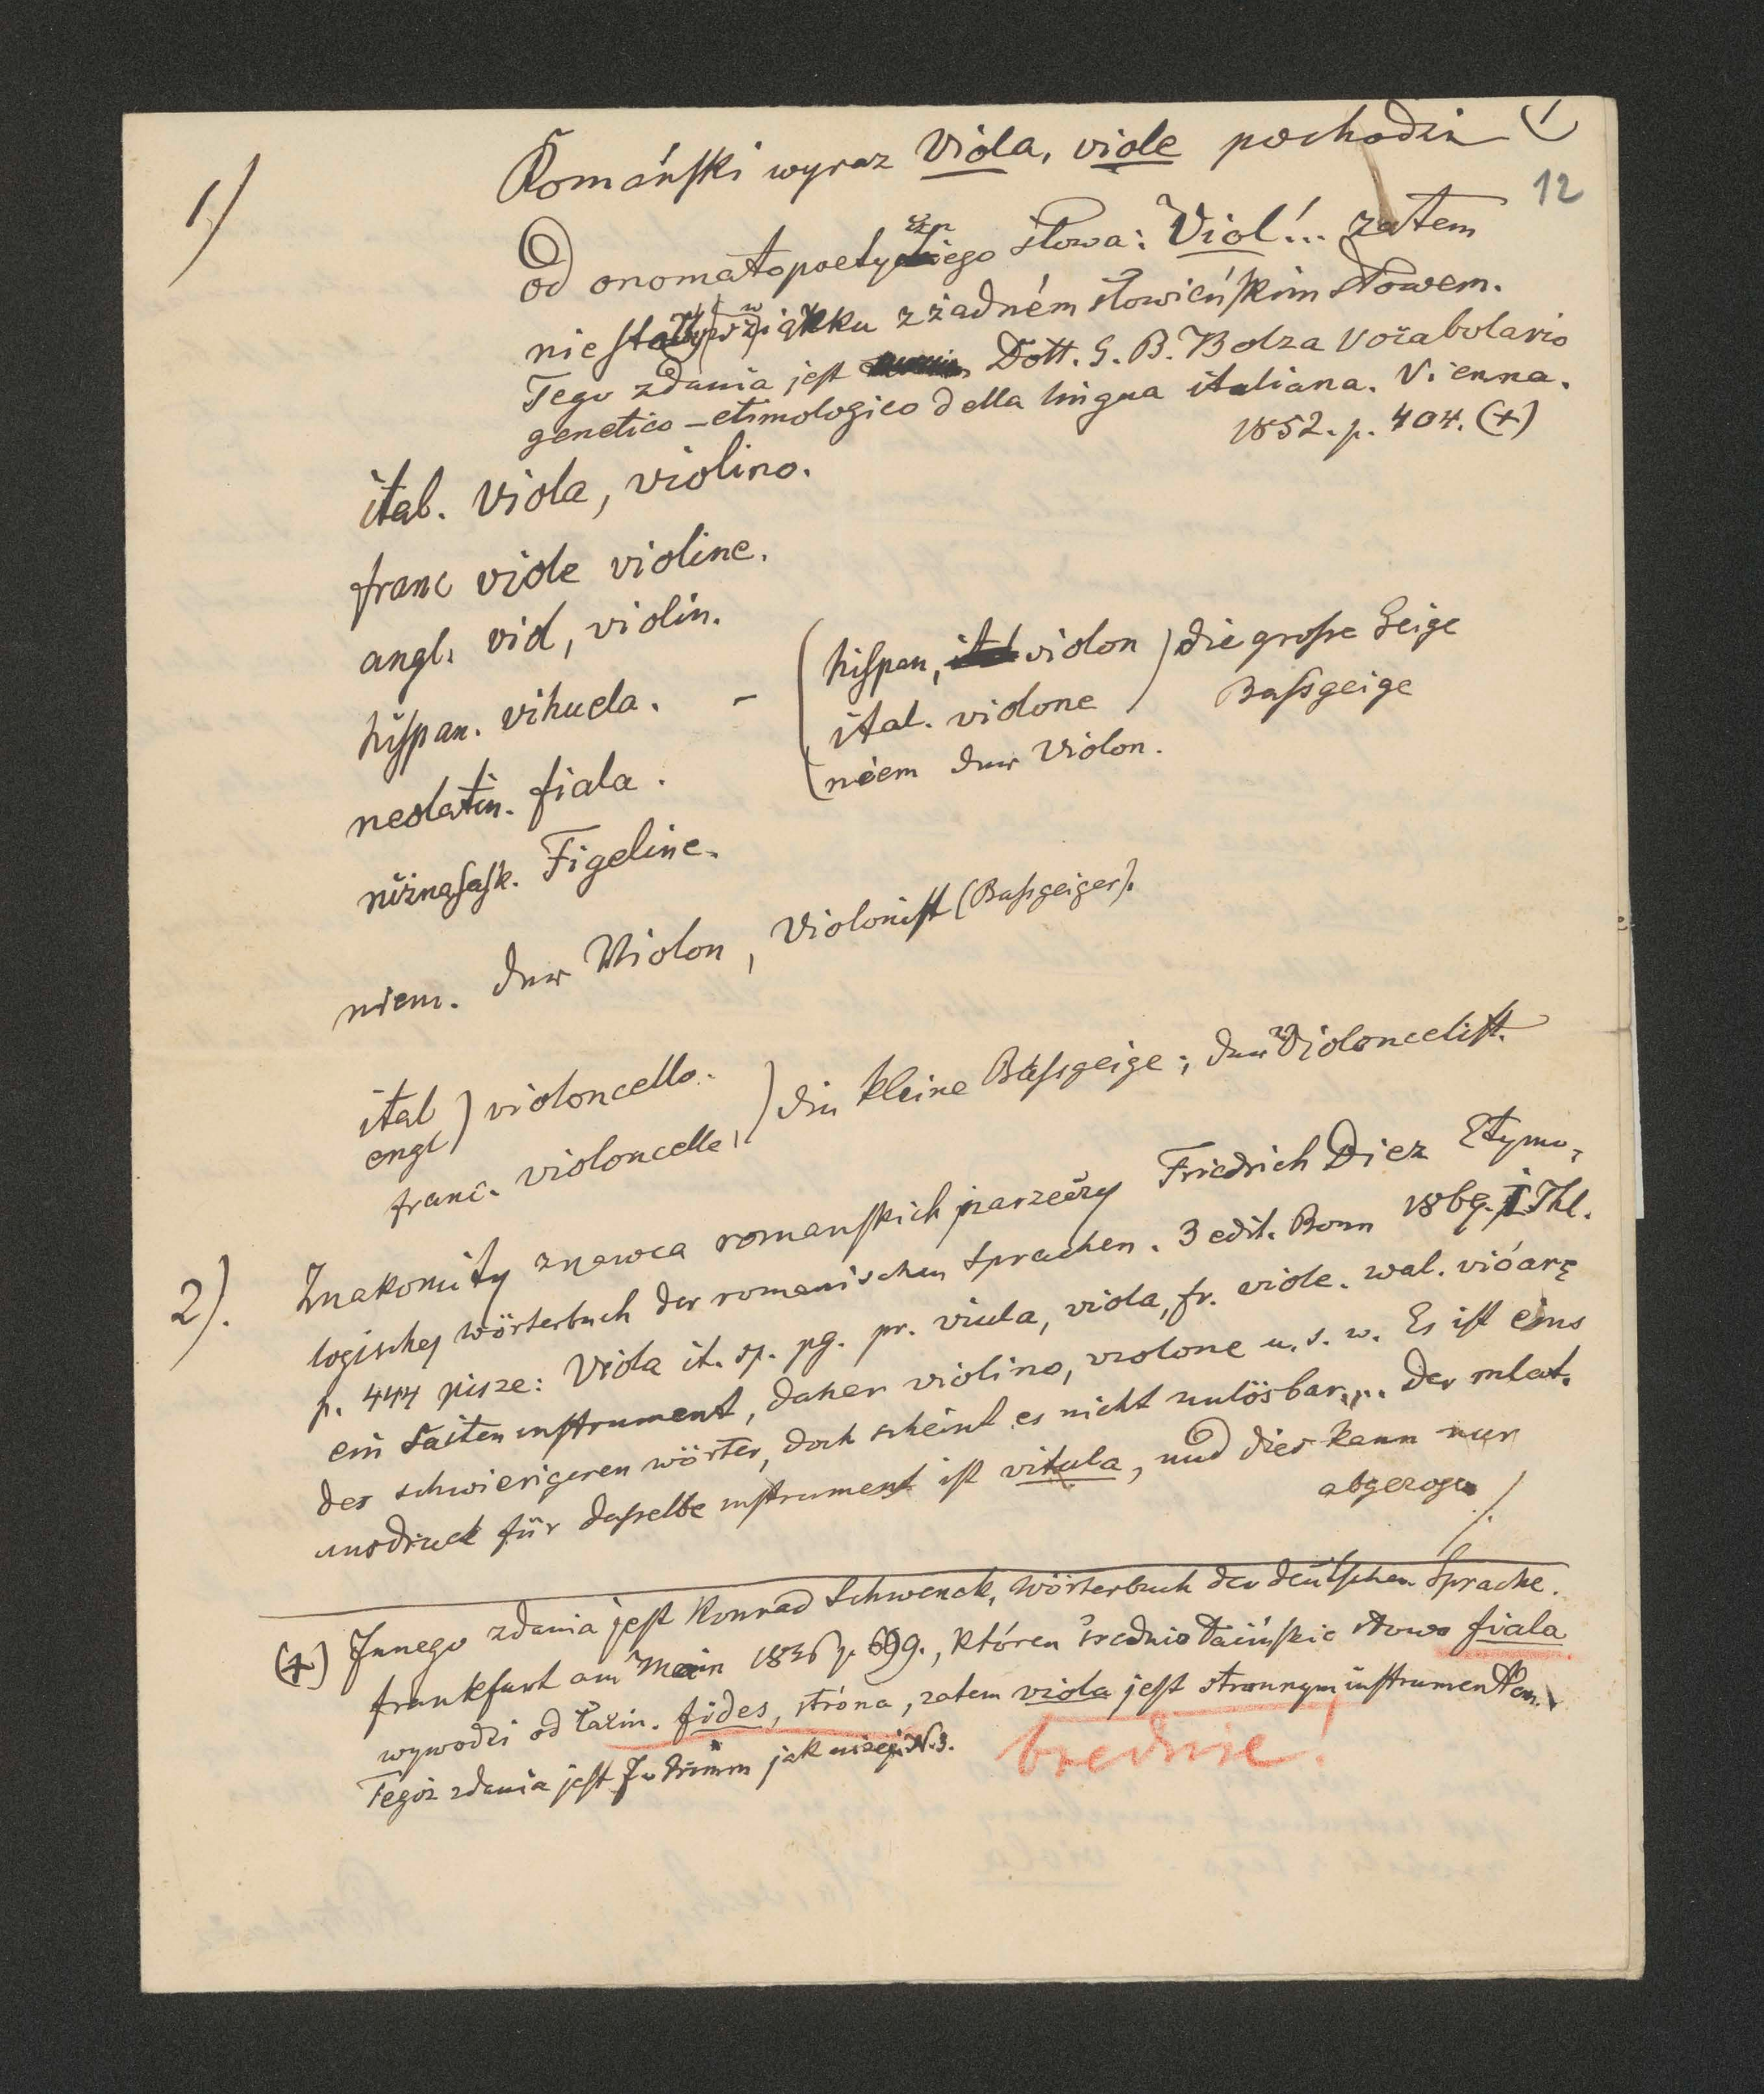 1)
12
Románski wyraz Viola, viole pochodzi
od onomatopoetycznego słowa: Viol!... zatem
nie stoi w związku z żadném słowieńskim słowem.
Tego zdania jest Dott. G. B. Bolza Vocabolario
genetico-etimologico della lingua italiana. Vienna.
1852. p. 404. (+)
ital. Viola, violino.
franc viole violine.
angl. viol, violin.
hispan. vihuela. - (hispan, violon) die grosse Geige
ital. violone Bassgeige
niem der Violon.
neolatin. fiala.
niżnasask. Figeline.
niem. der Violon, Violonist (Bassgeiger).
ital ) violoncello.
engl )
franc. violoncelle, ) die kleine Bassgeige; der Violoncelist.
2). Znakomity znawca romanskich narzeczy Friedrich Diez Etymo-
logisches wörterbuch der romanischen Sprachen. 3 edit. Bonn 1869. I Thl.
p. 444 pisze: Viola it. sp. pg. pr. viula, viola, fr. viole. wal. vióarę
ein Saiteninstrument, daher violino, violone u. s. w. Es ist eins
der schwierigeren wörter, doch scheint es nicht unlösbar.... Der mlat.
ausdruck für dasselbe instrument ist vitula, und dies kann nur
abgezogen ./.
(+) Innego zdania jest Konrad Schwenck, Wörterbuch der deutschen Sprache.
frankfurt am Main 1836 p. 699., któren średnio łaćińskie słowo fiala
wywodzi od łaćin. fides, stróna, zatem viola jest stronnym instrumentem.
Tegoż zdania jest J. Grimm jak niżej N. 3.
brednie!